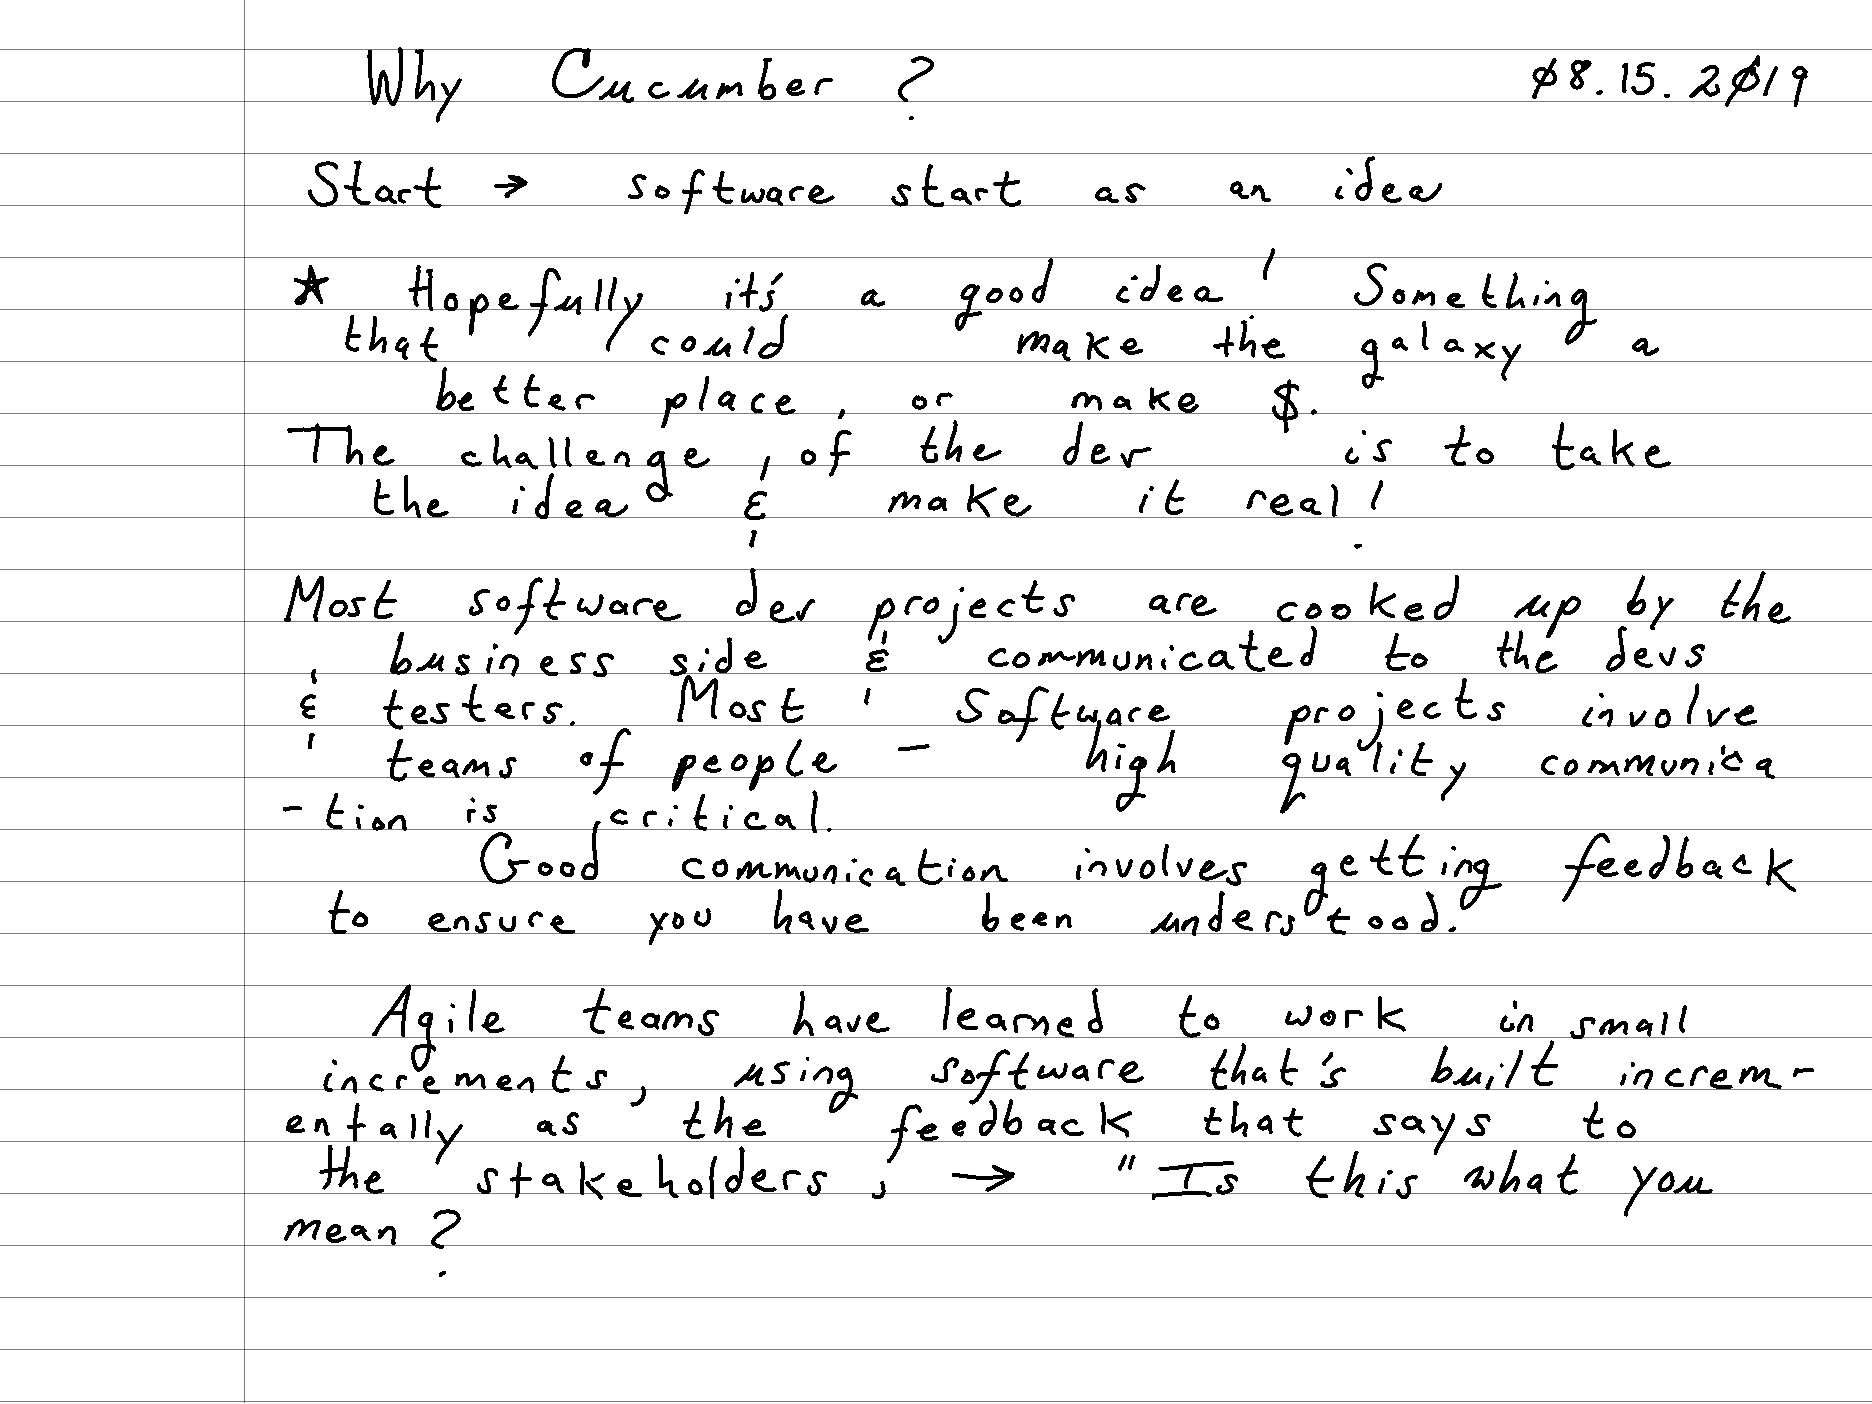 Why Cucumber ? 08.15.2019
Start → software start as an idea
★ Hopefully it's a good idea! Something
that could make the galaxy a
better place, or make $.
The challenge of the dev is to take
the idea & make it real!
Most software dev projects are cooked up by the
business side & communicated to the devs
& testers. Most Software projects involve
teams of people - high quality communica
-tion is critical.
Good communication involves getting feedback
to ensure you have been understood.
Agile teams have learned to work in small
increments, using software that's built increm-
entally as the feedback that says to
the stakeholders, → "Is this what you
mean?